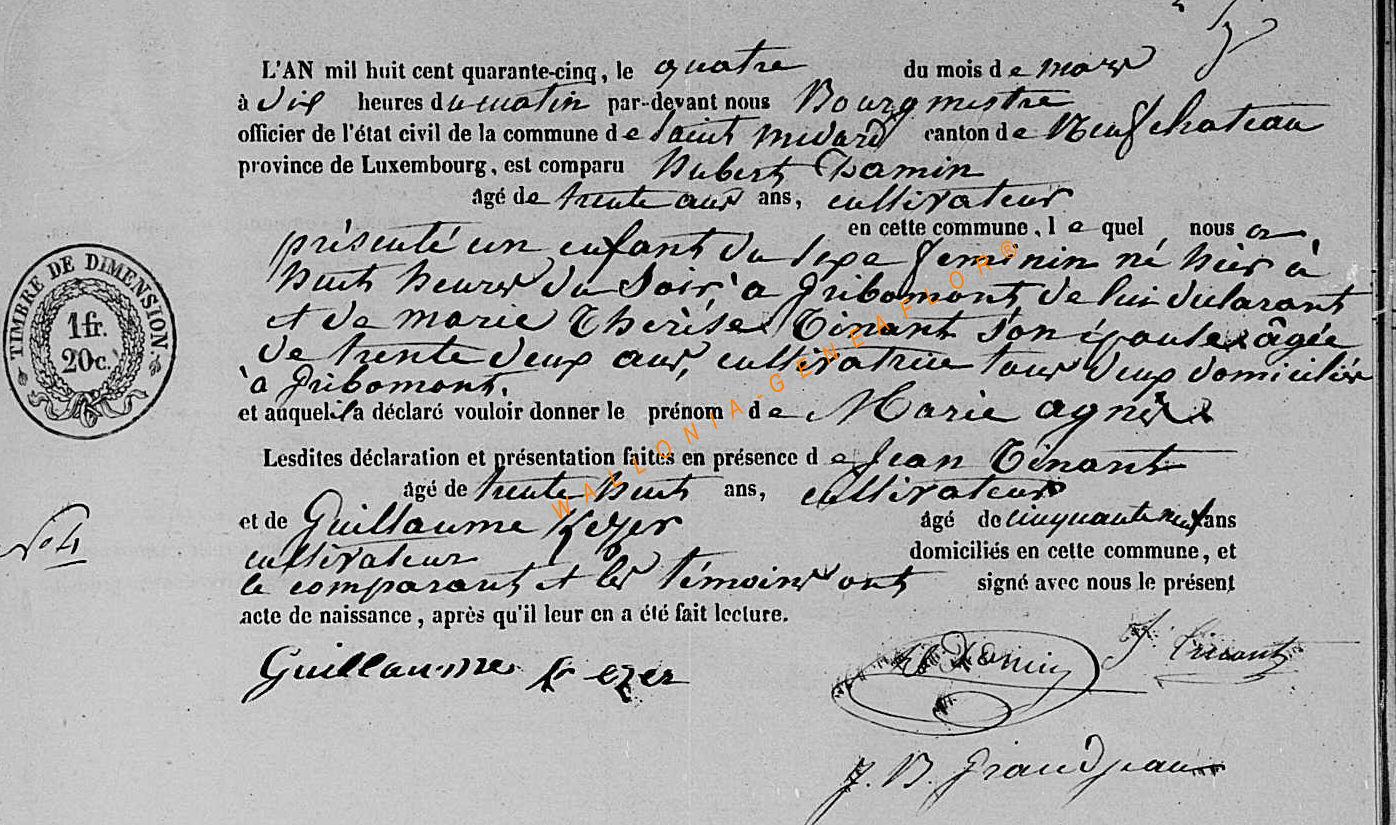 L'AN mil huit cent quarante-cinq, le quatre du mois de mars
à dix heures du matin par-devant nous Bourgmestre
officier de l'état civil de la commune de Saint Médard canton de Neufchateau
province de Luxembourg, est comparu Hubert Damin
âgé de trente ans ans, cultivateur
en cette commune, lequel nous a
présenté un enfant du sexe feminin né hier à
huit heures du Soir, à Gribomont, de lui déclarant
et de marie Thérèse Tinant son épouse âgée
de trente deux ans, cultivatrice tous deux domiciliés
à Gribomont.
et auquel il a déclaré vouloir donner le prénom de Marie agnès
Lesdites déclaration et présentation faites en présence de Jean Tinant
âgé de trente huit ans, cultivateur
et de Guillaume Kezer âgé de cinquante neuf ans
cultivateur domiciliés en cette commune, et
le comparant et les témoins ont signé avec nous le présent
acte de naissance, après qu'il leur en a été fait lecture.
Guillaume Kezer
H Damin
J. Tinant
J. B. Grandjean
TIMBRE DE DIMENSION.
1 fr.
20 c.
No 4
WALLONIA-GENEAFLOR®